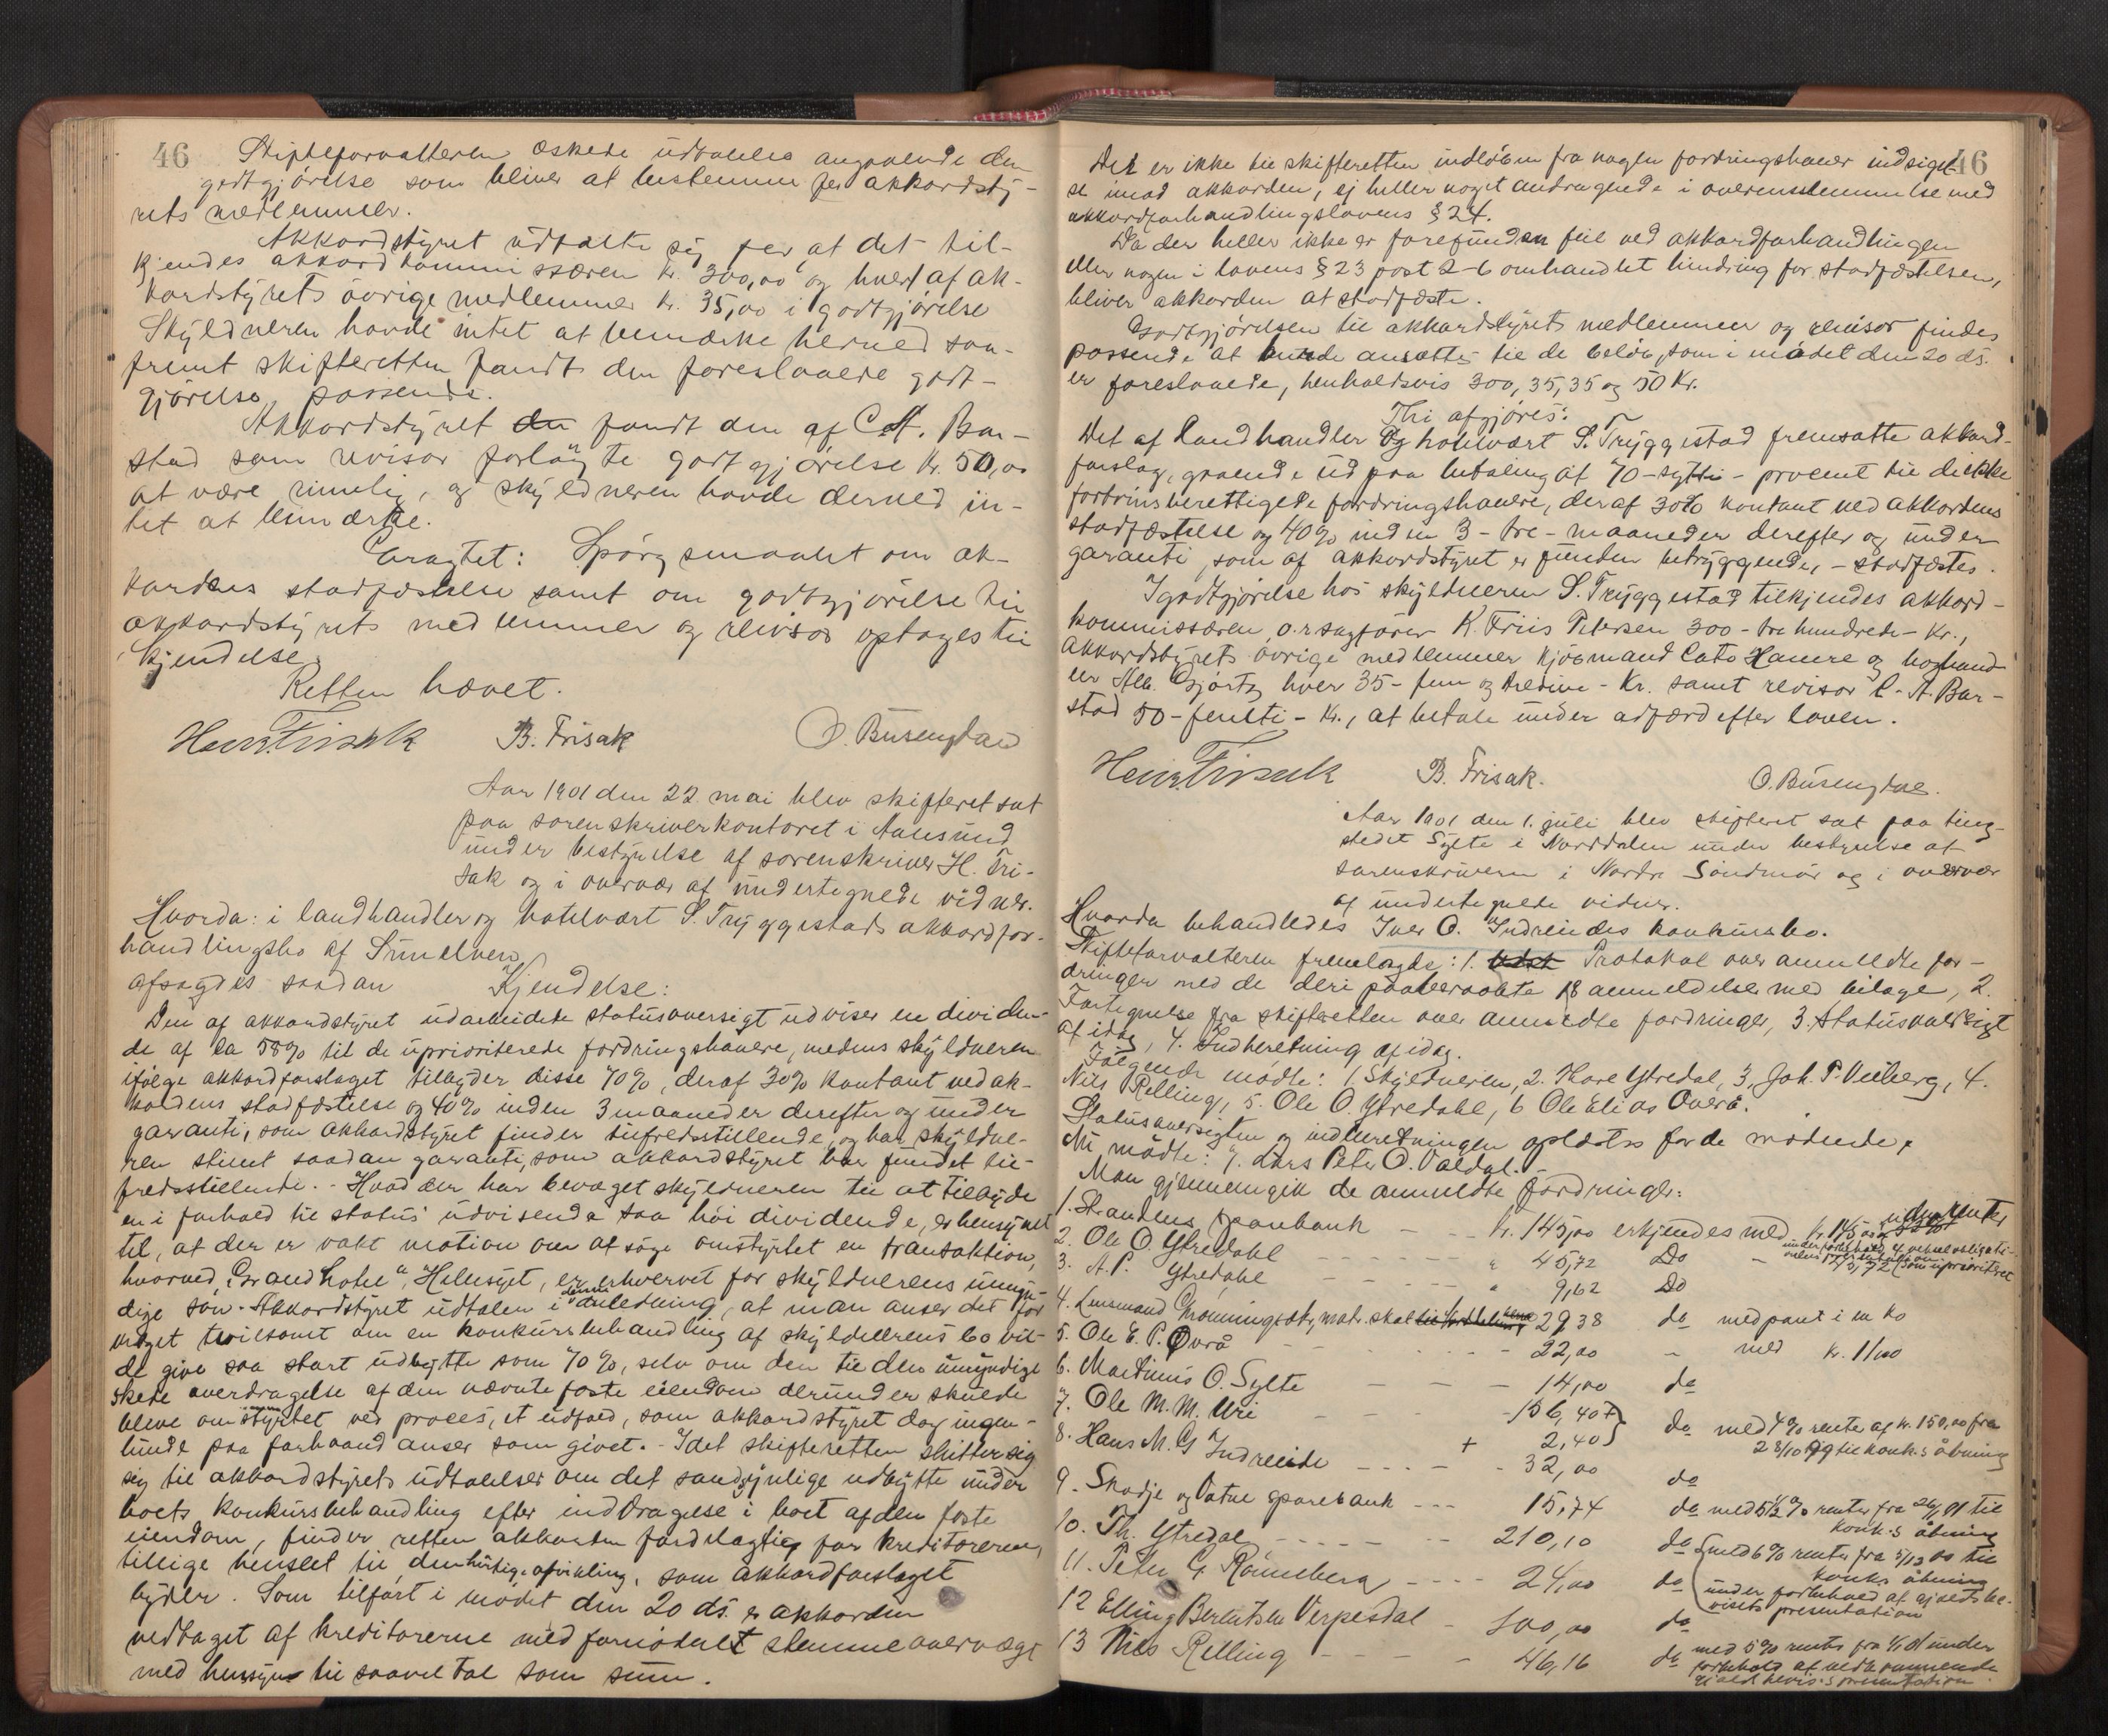 46
Skifteforvalteren æskede udtalelse angaaende den
godtgjörelse som bliver at bestemme for akkordsty-
rets medlemmer.
Akkordstyret udtalte sig for at det til-
kjendes akkordkommissæren kr. 300,00 og hvert af ak-
kordstyrets övrige medlemmer kr. 35,00 i godtgjörelse
Skyldneren havde intet at bemærke herved saa-
fremt skifteretten fandt den foreslaaede godt-
gjörelse passende.
Akkordstyret fandt den af C. A. Bar-
stad som revisor forlangte godtgjörelse kr. 50,00
at være rimelig, og skyldneren havde derved in-
tet at bemærke.
Eragtet: Spörgsmaalet om ak-
kordens stadfæstelse samt om godtgjörelse til
akkordstyrets medlemmer og revisor optages til
kjendelse.
Retten hævet.
Henr. Frisak B. Frisak O. Busengdal
Aar 1901 den 22 mai blev skifteret sat
paa sorenskriverkontoret i Aalesund
under bestyrelse af sorenskriver H. Fri-
sak og i overvær af undertegnede vidner.
Hvorda: i landhandler og hotelvært S. Tryggestads akkordfor-
handlingsbo af Sunelven
afsagdes saadan Kjendelse:
Den af akkordstyret udarbeidede statusoversigt udviser en dividen-
de af ca 58% til de uprioriterede fordringshavere, medens skyldneren
ifölge akkordforslaget tilbyder disse 70%, deraf 30% kontant ved ak-
kordens stadfæstelse og 40% inden 3 maaneder derefter og under
garanti, som akkordstyret finder tilfredsstillende, og har skyldne-
ren stillet saadan garanti, som akkordstyret har fundet til-
fredsstillende. - Hvad der har bevæget skyldneren til at tilbyde
en i forhold til status udvisende saa höi dividende, er hensynet
til, at der er vakt motion om at söge omstyrtet en transaktion,
hvorved "Grand hotel", Helesylt, er erhvervet for skyldnerens umyn-
dige sön. Akkordstyret udtaler i denne anledning, at man anser det for
meget tvilsomt om en konkursbehandling af skyldnerens bo vil-
de give saa stort udbytte som 70%, selv om den til den umyndige
skede overdragelse af den nævnte faste eiendom derunder skulde
blive omstyrtet ved proces, et udfald, som akkordstyret dog ingen-
lunde paa forhaand anser som givet. - Idet skifteretten slutter sig
sig til akkordstyrets udtalelser om det sandsynlige udbytte under
boets konkursbehandling efter inddragelse i boet af den faste
eiendom, finder retten akkorden fordelagtig for kreditorerne,
tillige henseet til den hurtige afvikling, som akkordforslaget
byder. Som tilfört i mödet den 20 ds. er akkorden
vedtaget af kreditorerne med fornödent stemmeovervægt
med hensyn til saavel tal som sum.
46
Det er ikke til skifteretten indlöbne fra nogen fordringshaver indsigel-
se imod akkorden, ej heller noget andragende i overensstemmelse med
akkordforhandlingslovens § 24.
Da der heller ikke er forefunden feil ved akkordforhandlingen
eller nogen i lovens § 23 post 2-6 omhandlet hindring for stadfæstelsen,
bliver akkorden at stadfæste.
Godtgjörelsen til akkordstyrets medlemmer og revisor findes
passende at burde ansættes til de belöb, som i mödet den 20 ds.
er foreslaaede, henholdsvis 300, 35, 35 og 50 Kr.
Thi afgjöres:
Det af landhandler og hotelvært S. Tryggestad fremsatte akkord-
forslag, gaaende ud paa betaling af 70 - sytti - procent til de ikke
fortrinsberettigede fordringshavere, deraf 30% kontant ved akkordens
stadfæstelse og 40% inden 3 - tre - maaneder derefter og under
garanti, som af akkordstyret er funden betryggende, - stadfæstes.
I godtgjörelse hos skyldneren S. Tryggestad tilkjendes akkord-
kommissæren, o.r.sagförer K. Friis Petersen 300 - tre hundrede - kr.,
akkordstyrets övrige medlemmer kjöbmand Cato Hamre og boghand-
ler Alb. Gjörtz hver 35 - fem og tredive - Kr. samt revisor C. A. Bar-
stad 50 - femti - Kr., at betale under adfærd efter loven.
Henr. Frisak B. Frisak. O. Busengdal.
Aar 1901 den 1. juli blev skifteret sat paa ting-
stedet Sylte i Norddalen under bestyrelse af
sorenskriveren i Nordre Söndmör og i overvær
af undertegnede vidner.
Hvorda behandledes Iver O. Indreides konkursbo.
Skifteforvalteren fremlagde: 1. Protokol over anmeldte for-
dringer med de deri paaberaabte 18 anmeldelser med bilage, 2.
Fortegnelse fra skifteretten over anmeldte fordringer, 3. Statusoversigt
af idag, 4. Indberetning af idag.
Fölgende mödte: 1. Skyldneren, 2. Kare Ytredal, 3. Joh. P. Viiberg, 4.
Nils Relling, 5. Ole O. Ytredahl, 6 Ole Elias Överå.
Statusoversigten og indberetningen oplæstes for de mödende,
Nu mödte: 7. Lars Peter O. Valdal. -
Man gjennemgik de anmeldte fordringer:
1. Strandens sparebank - kr. 145,00 erkjendes med kr. 145,00 uden renter
under forbehold af vexelobligati-
2. Ole O. Ytredahl - - - " 45,72 Do - 45,72 (som uprioriteret
3. A. P. Ytredahl - - - " 9,62 Do
4. Lensmand Mönningsæt, matr. skat 29 38 do med pant i en ko
5. Ole E. P. Överå - - - 22,00 - med kr. 11,00
6. Martinus O. Sylte - - - 14,00 do
7. Ole M. M. Uri - - - 156,40 + do med 4% rente af kr. 150,00 fra
+ 2,40 28/10 99 til konk.s åbning
8. Hans M. G Indreeide - - - 32,00 do
9. Skodje og Vatne sparebank - - - 15,74 do med 5½% renter fra 26/4 01 til
konk.s åbning
10. Th. Ytredal - - - 210,10 do med 6% renter fra 5/12 00 til
konk.s åbning
11. Peter G Rönneberg - - - 24,00 do under forbehold af gjældsbe-
visets presentation
12 Elling Berentsen Verpesdal - 100,00 do
13 Nils Relling - - - 46,16 do med 5% rente fra 1/1 01 under
forbehold af vedkommende
gjældsbevis:s presentation